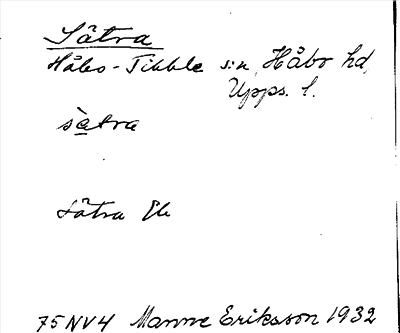 Sätra
Håbo-Tibble s:n, Håbo hd,
Upps. l.
sàtra
Sätra
75NV4 Manne Eriksson 1932